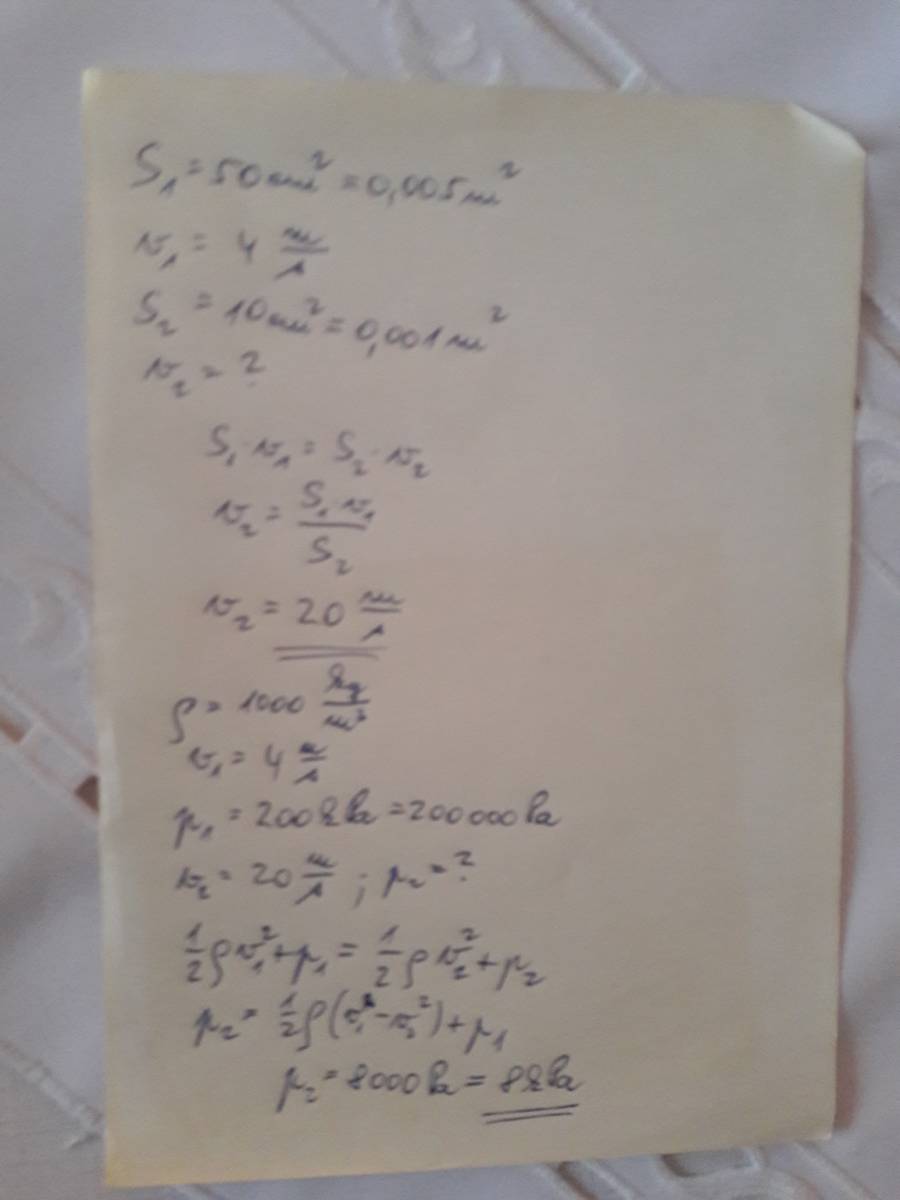 S₁ = 50 cm² = 0,005 m²
v₁ = 4 m/s
S₂ = 10 cm² = 0,001 m²
v₂ = ?
S₁·v₁ = S₂·v₂
v₂ = S₁·v₁/S₂
v₂ = 20 m/s
ρ = 1000 kg/m³
v₁ = 4 m/s
p₁ = 200 kPa = 200 000 Pa
v₂ = 20 m/s ; p₂ = ?
1/2 ρ v₁² + p₁ = 1/2 ρ v₂² + p₂
p₂ = 1/2 ρ (v₁² - v₂²) + p₁
p₂ = 8000 Pa = 8 kPa